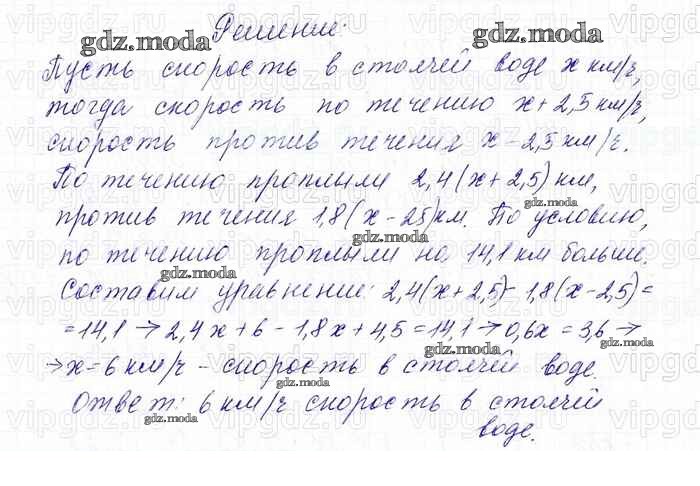 Решение:
Пусть скорость в стоячей воде x км/ч,
тогда скорость по течению x+2,5 км/ч,
скорость против течения x-2,5 км/ч.
По течению проплыли 2,4(x+2,5) км,
против течения 1,8(x-25) км. По условию,
по течению проплыли на 14,1 км больше.
Составим уравнение: 2,4(x+2,5)-1,8(x-2,5)=
=14,1 → 2,4x+6-1,8x+4,5=14,1 → 0,6x=3,6 →
→ x=6 км/ч - скорость в стоячей воде.
Ответ: 6 км/ч скорость в стоячей
воде.
gdz.moda
gdz.moda
gdz.moda
gdz.moda
gdz.moda
gdz.moda
gdz.moda
gdz.moda